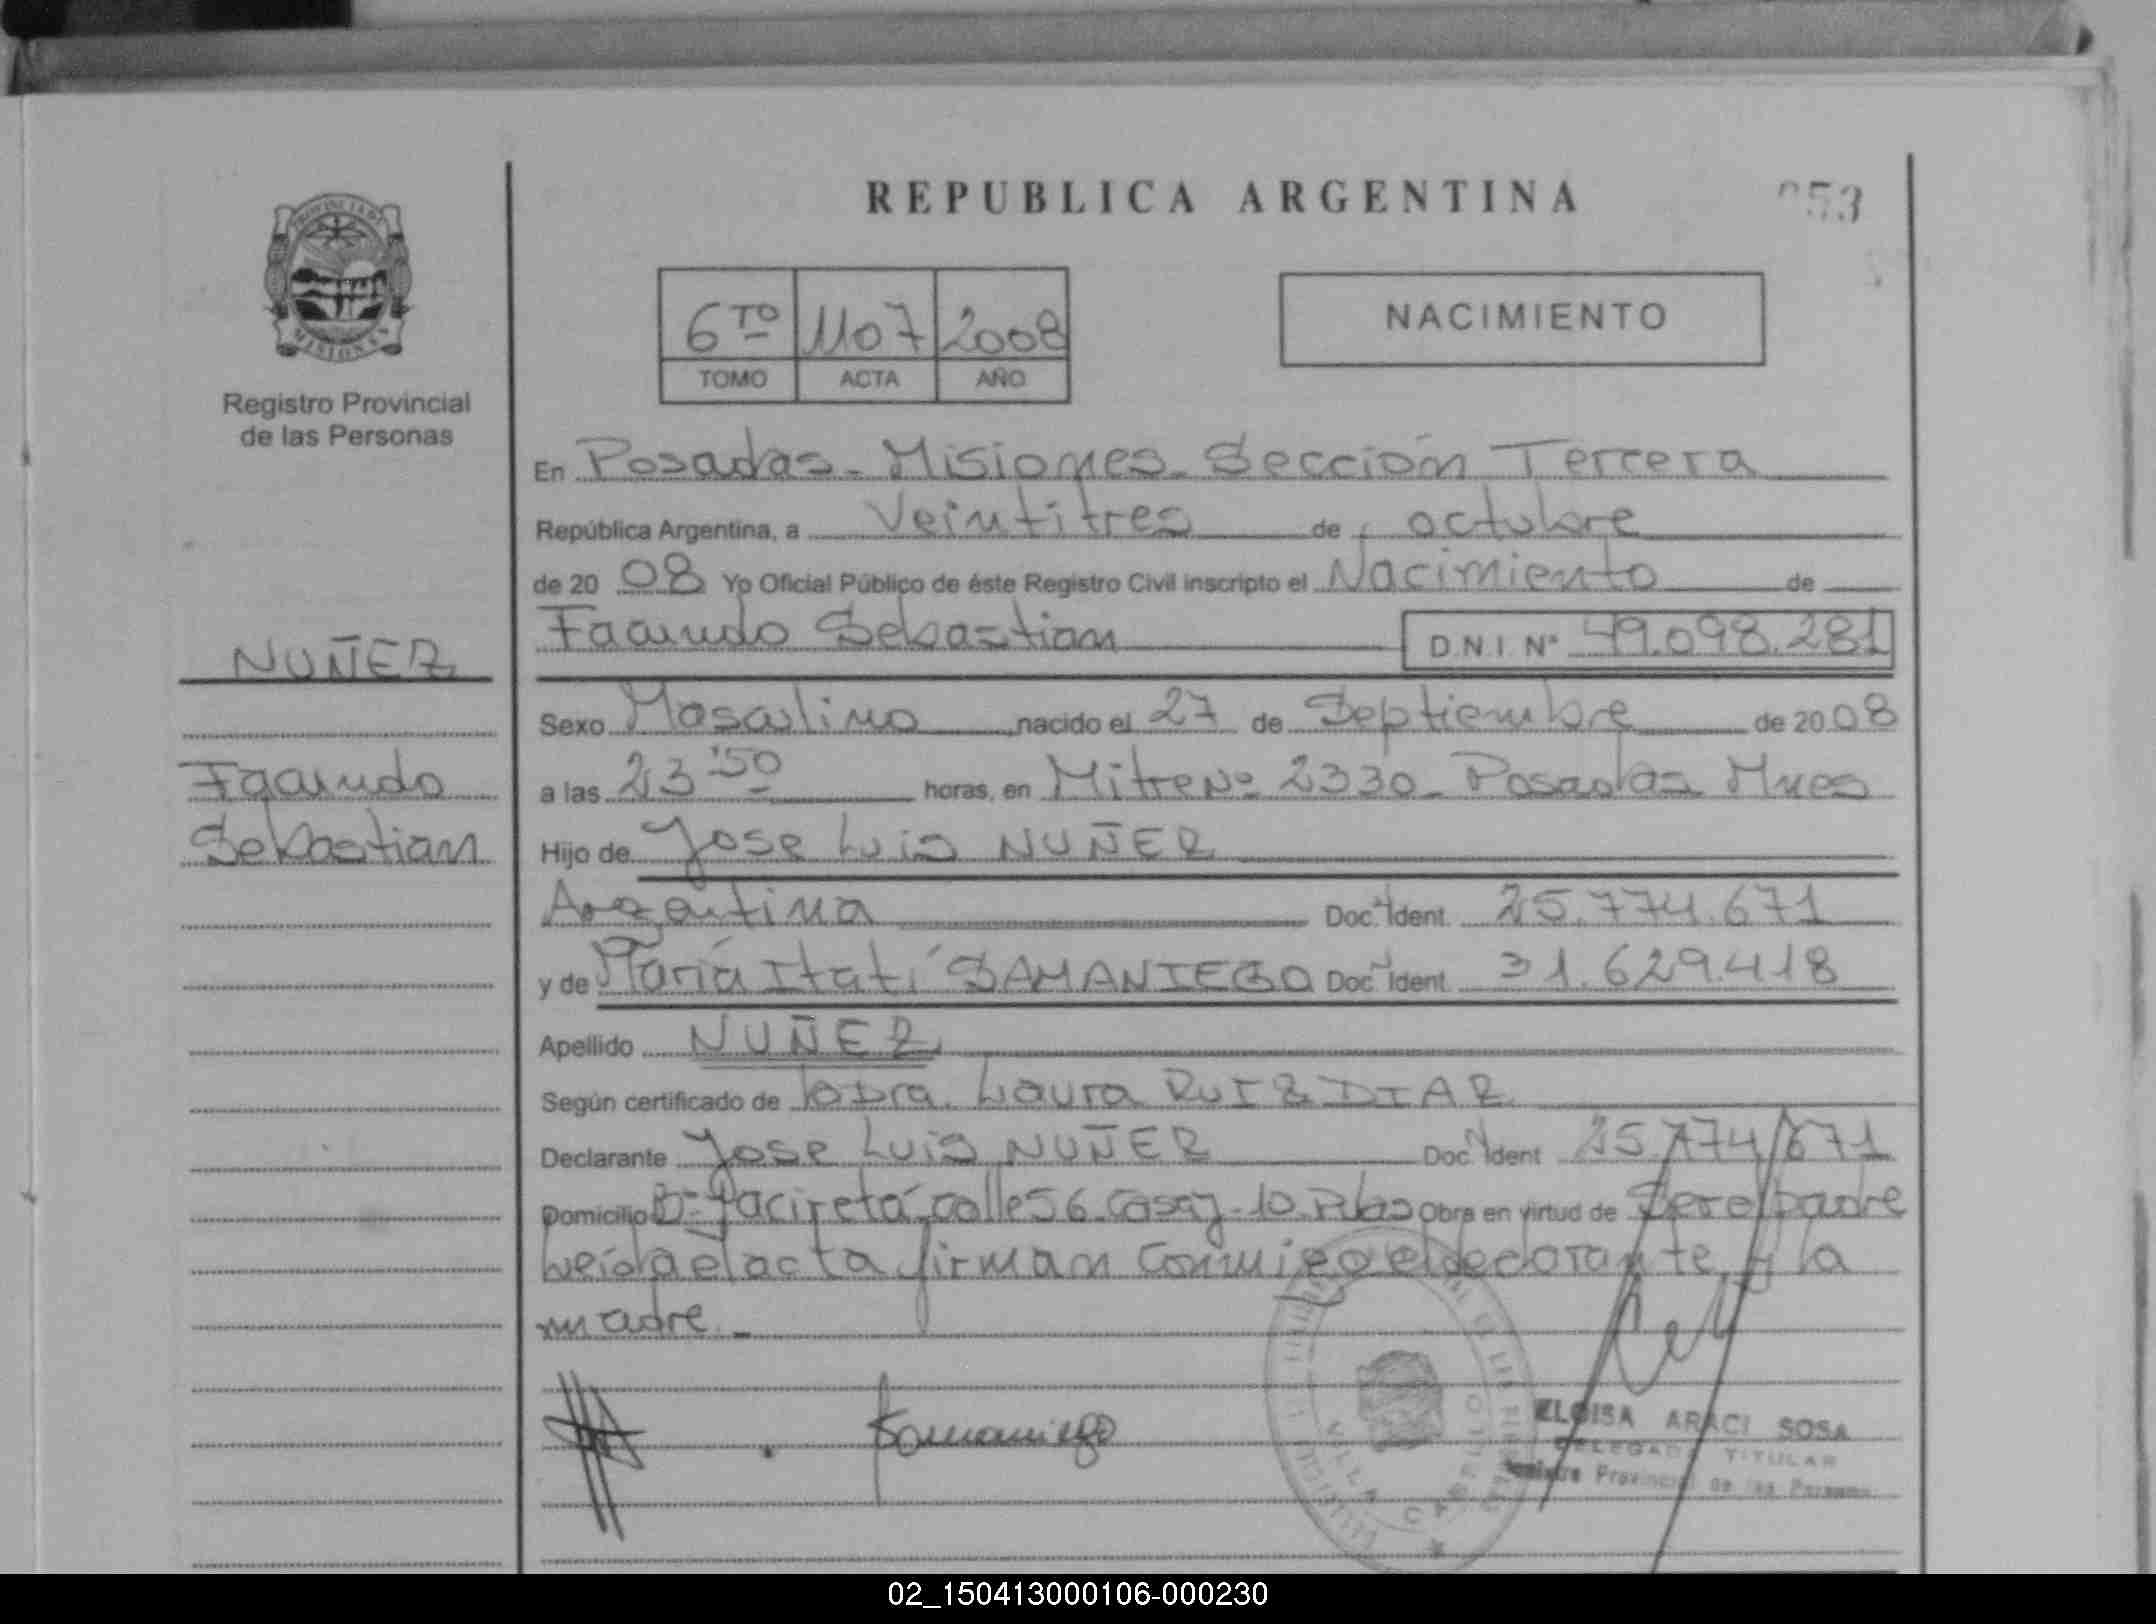 REPUBLICA ARGENTINA
053
PROVINCIA DE
MISIONES
Registro Provincial
de las Personas
6TO 1107 2008
TOMO ACTA AÑO
NACIMIENTO
En Posadas - Misiones - Sección Tercera
República Argentina, a Veintitres de octubre
de 20 08 Yo Oficial Público de éste Registro Civil inscripto el Nacimiento de
Facundo Sebastian D.N.I. Nº 49.098.281
NUÑEZ
Facundo
Sebastian
Sexo Masculino nacido el 27 de Septiembre de 20 08
a las 23'50 horas, en Mitre Nº 2330 - Posadas Mnes
Hijo de Jose Luis NUÑEZ
Argentina Doc. Ident. 25.774.671
y de María Itatí SAMANIEGO Doc. Ident. 31.629.418
Apellido NUÑEZ
Según certificado de la Dra. Laura RUIZ DIAZ
Declarante Jose Luis NUÑEZ Doc. Ident 25.774.671
Domicilio Bº Yacireta calle 56 Casa 10 Pdas Obra en virtud de Ser el padre
Leída el acta firman Conmigo el declarante y la
madre. -
Samaniego
VILLA CABELLO
ELOISA ARACI SOSA
DELEGADA TITULAR
Registro Provincial de las Personas
02_150413000106-000230